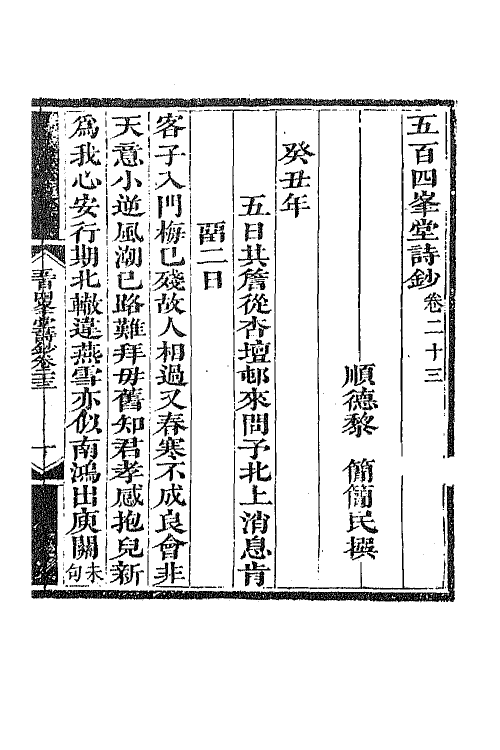 五百四峯堂詩鈔卷二十三
順德黎　簡簡民撰
癸丑年
五日其詹從杏壇邨來問予北上消息肯
留二日
客子入門梅已殘故人相過又春寒不成良會非
天意小逆風潮已路難拜毋舊知君孝感抱兒新
爲我心安行期北轍違燕雪亦似南鴻出庾關末句
五百四峯堂詩鈔卷二十三